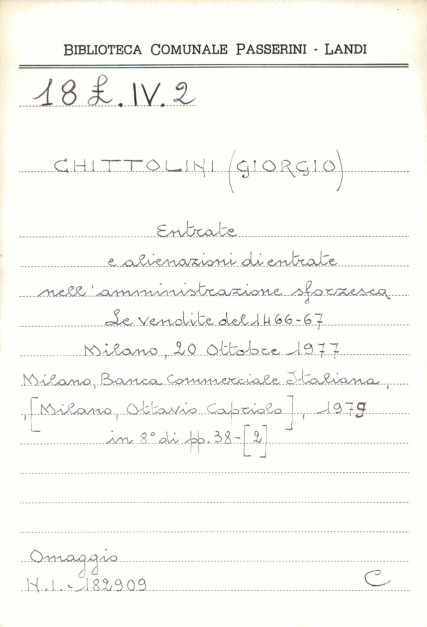 BIBLIOTECA COMUNALE PASSERINI - LANDI
18 £.IV.2
CHITTOLINI (GIORGIO)
Entrate
e alienazioni di entrate
nell'amministrazione sforzesca
Le vendite del 1466-67
Milano, 20 Ottobre 1977
Milano, Banca Commerciale Italiana,
,[Milano, Ottavio Capriolo], 1979
in 8° di pp. 38-[2]
Omaggio
N.I.-182909
C